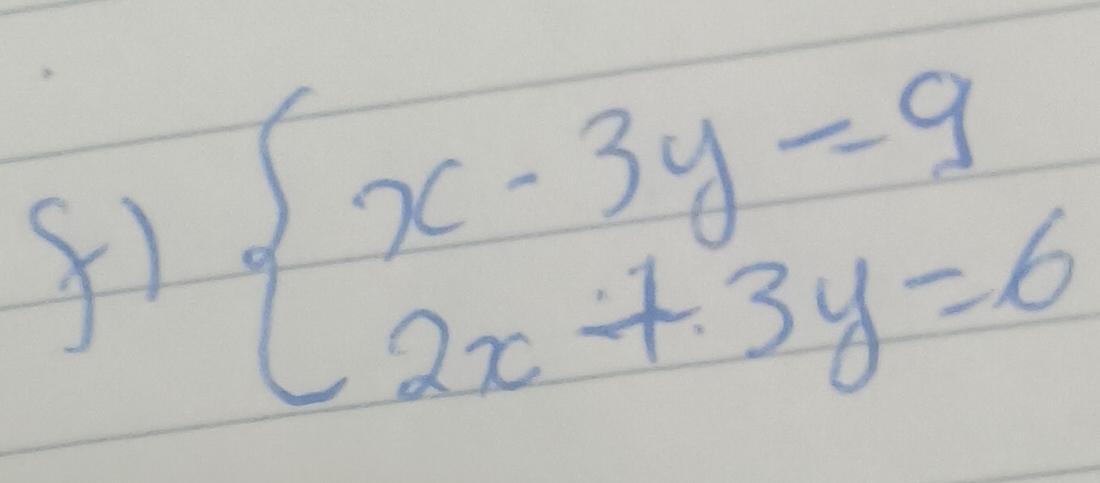 f) { x - 3y = 9
2x + 3y = 6